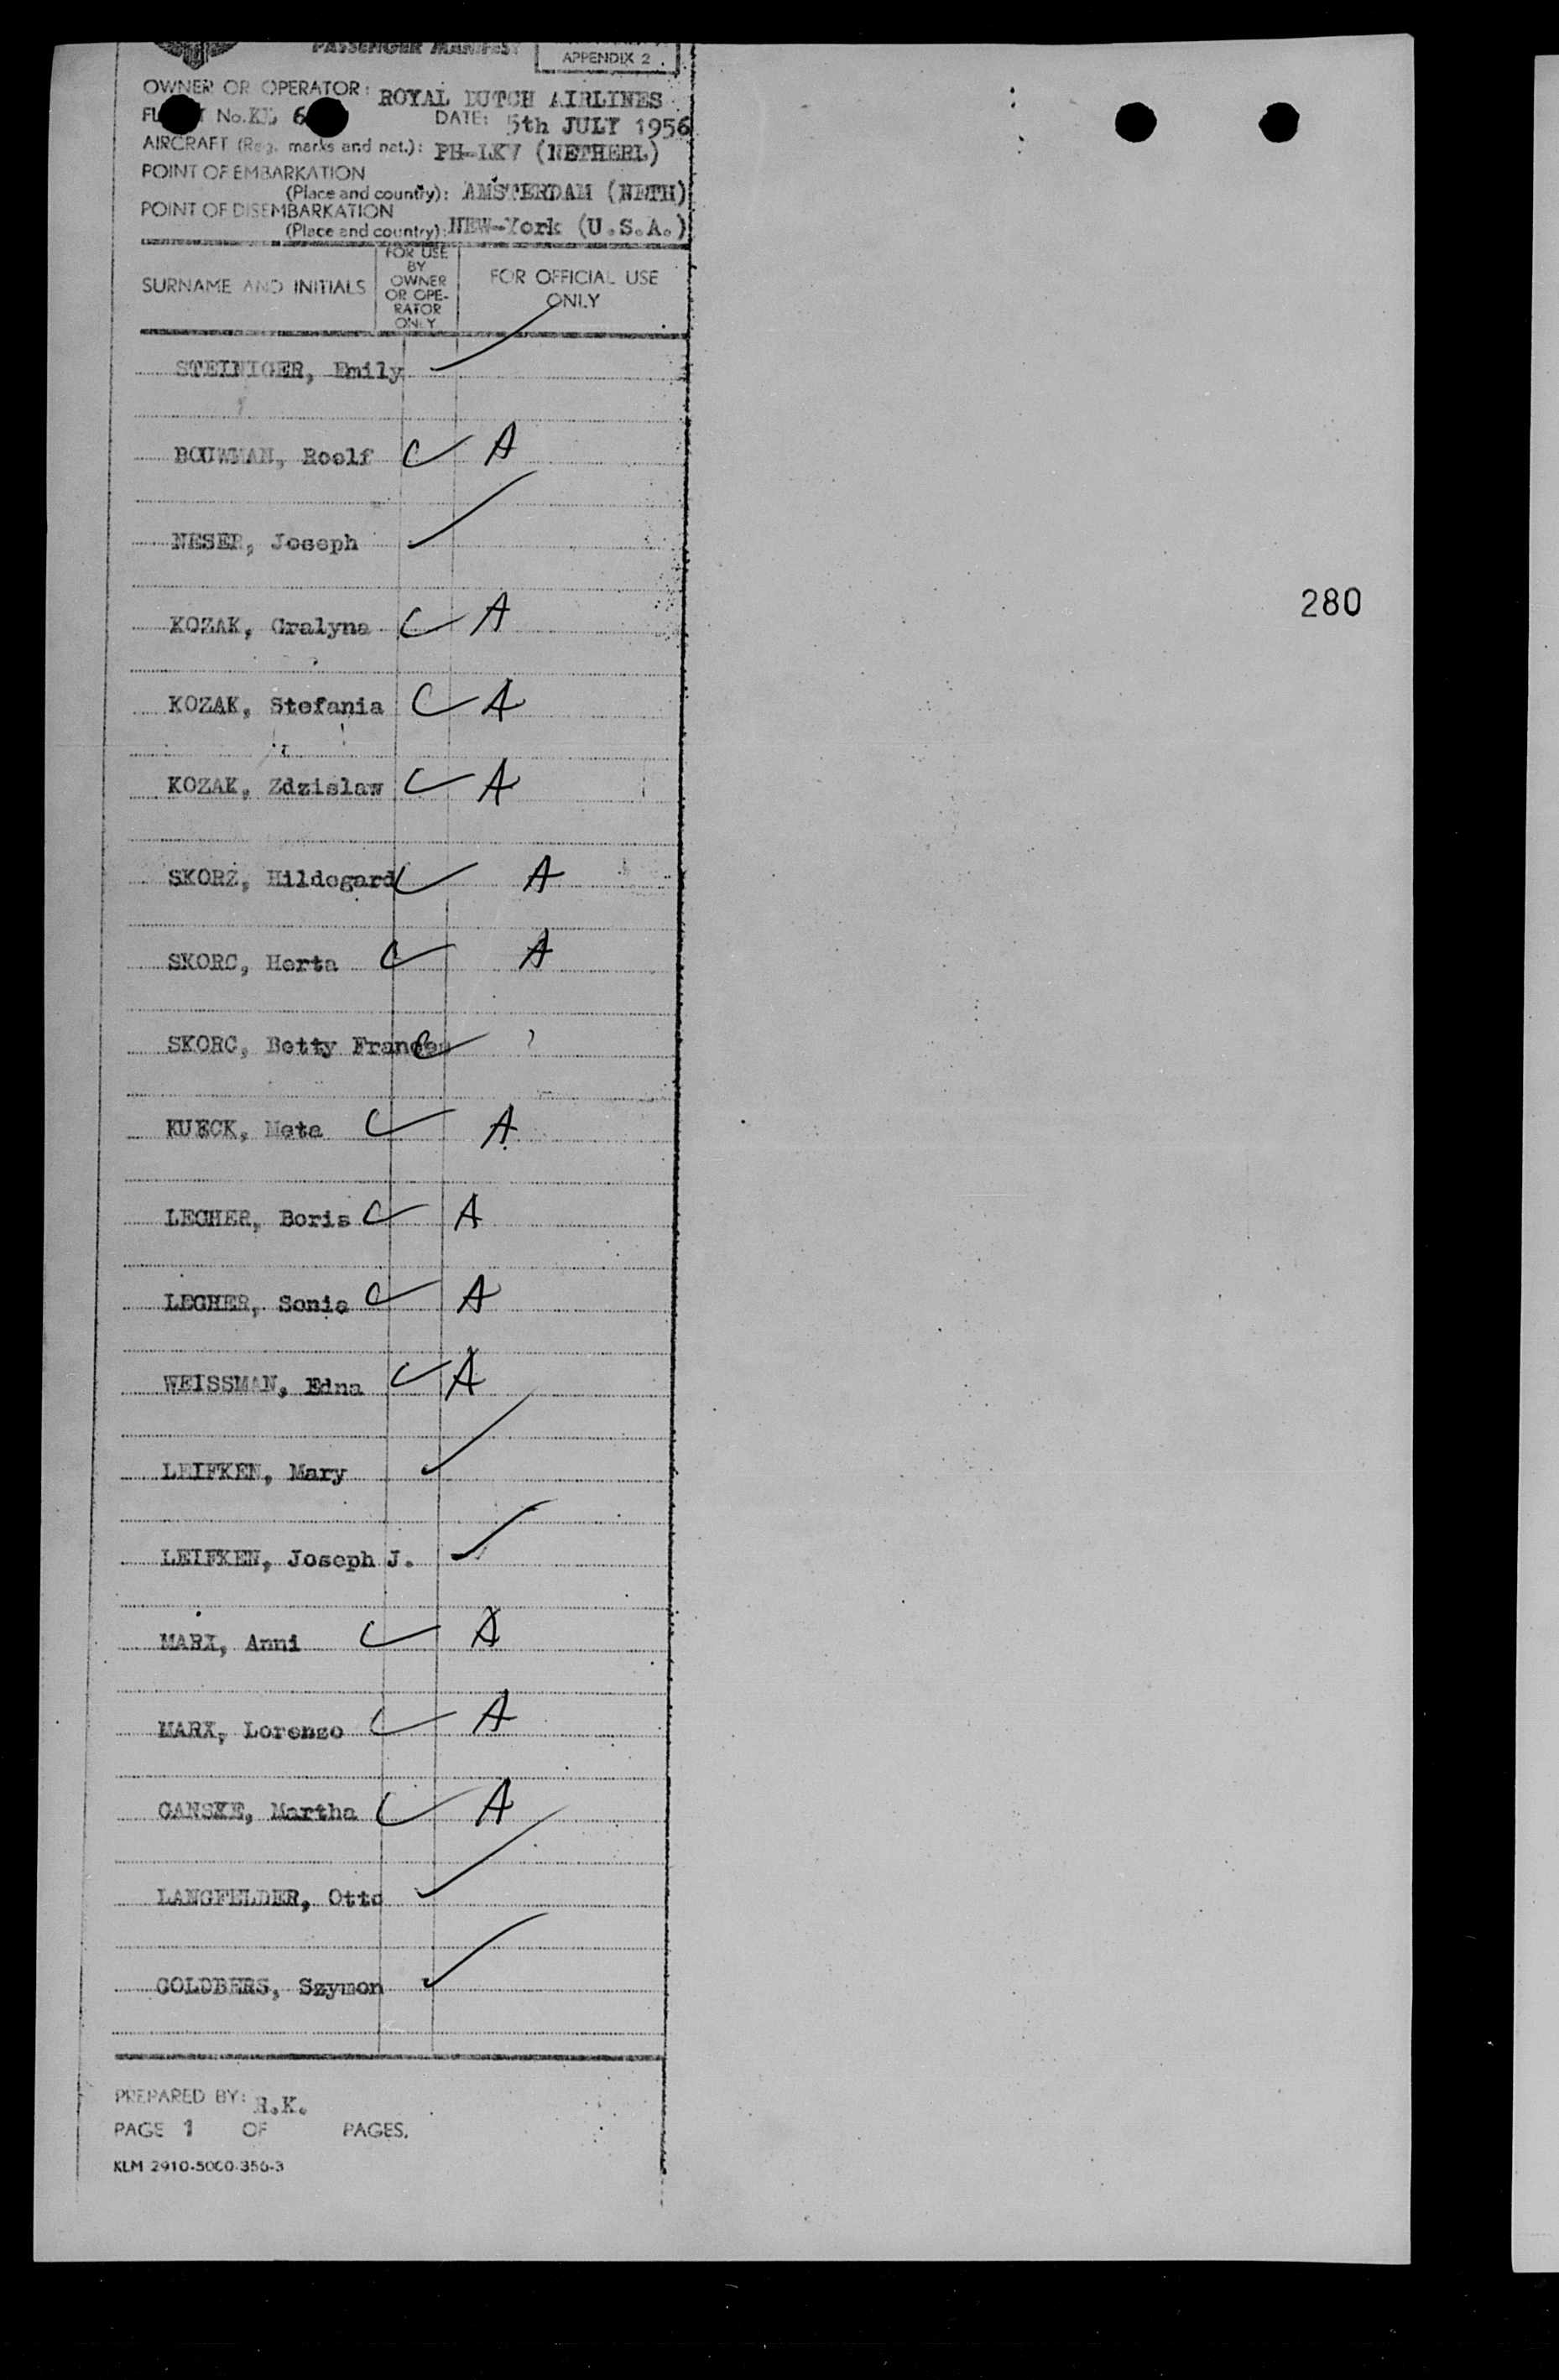 PASSENGER MANIFEST
APPENDIX 2
OWNER OR OPERATOR: ROYAL DUTCH AIRLINES
No. KL 6 DATE: 5th JULY 1956
AIRCRAFT (Reg. marks and nat.): PH-LKV (NETHERL)
POINT OF EMBARKATION
(Place and country): AMSTERDAM (NETH)
POINT OF DISEMBARKATION
(Place and country): NEW-York (U.S.A.)
SURNAME AND INITIALS
FOR USE
BY
OWNER
OR OPE-
RATOR
ONLY
FOR OFFICIAL USE
ONLY
STEINIGER, Emily
BOUWMAN, Roelf A
NESER, Joseph
280
KOZAK, Gralyna A
KOZAK, Stefania A
KOZAK, Zdzislaw A
SKORZ, Hildegard A
SKORC, Herta A
SKORC, Betty Frances
KUECK, Meta A
LECHER, Boris A
LECHER, Sonia A
WEISSMAN, Edna A
LEIFKEN, Mary
LEIFKEN, Joseph J.
MARX, Anni A
MARX, Lorenzo A
GANSKE, Martha A
LANGFELDER, Otto
GOLDBERS, Szymon
PREPARED BY: R.K.
PAGE 1 OF PAGES.
KLM 2910-5000-356-3